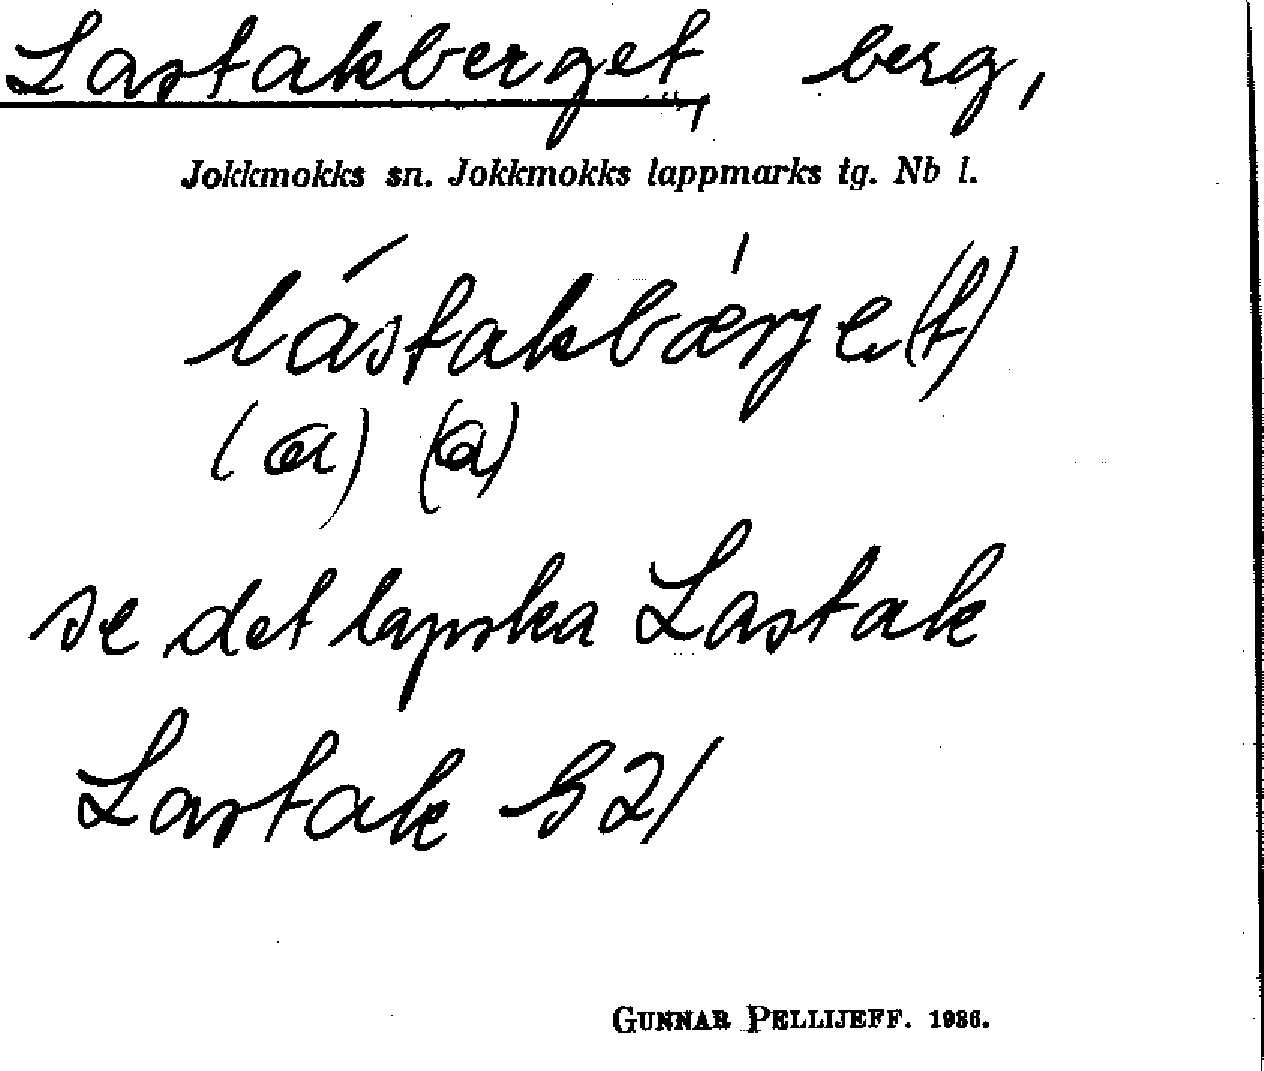 Lastakberget, berg,
Jokkmokks sn. Jokkmokks lappmarks tg. Nb l.
lástakbǽrje(t)
(a) (a)
se det lapska Lastak
Lastak G 21
GUNNAR PELLIJEFF. 1936.